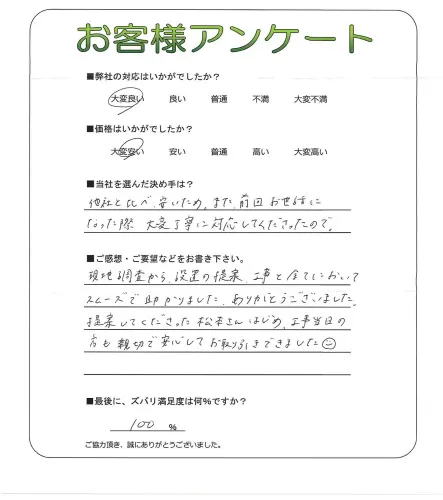 お客様アンケート
■弊社の対応はいかがでしたか？
大変良い 良い 普通 不満 大変不満
■価格はいかがでしたか？
大変安い 安い 普通 高い 大変高い
■当社を選んだ決め手は？
他社と比べ、安いため。また、前回お世話に
なった際、大変丁寧に対応してくださったので。
■ご感想・ご要望などをお書き下さい。
現地調査から、設置の提案、工事と全てにおいて
スムーズで助かりました。ありがとうございました。
提案してくださった松本さんはじめ、工事当日の
方も親切で安心してお取り引きできました☺
■最後に、ズバリ満足度は何%ですか？
100 %
ご協力頂き、誠にありがとうございました。